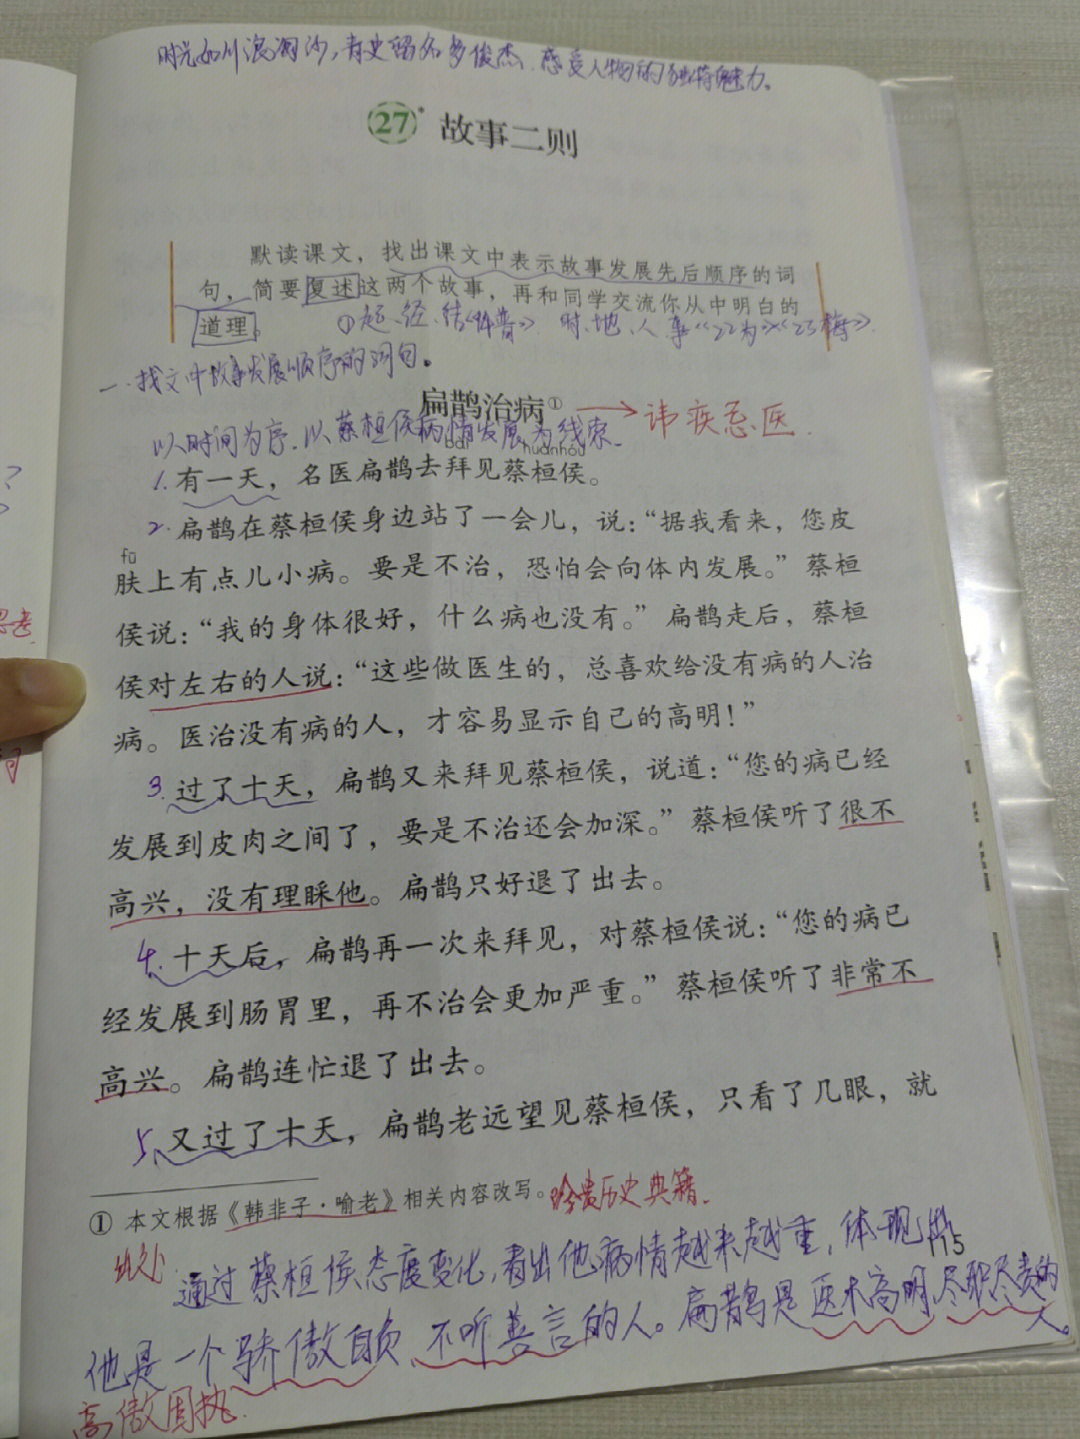 时光如川浪淘沙，青史留名多俊杰，感受人物的独特魅力。
27* 故事二则
默读课文，找出课文中表示故事发展先后顺序的词
句，简要复述这两个故事，再和同学交流你从中明白的
道理。
①起、经、结《科普》 时、地、人、事《22为》《23梅》
一、找文中故事发展顺序的词句。
扁鹊治病①
→讳疾忌医.
以时间为序.以蔡桓侯病情发展为线索.
bài huánhóu
1.有一天，名医扁鹊去拜见蔡桓侯。
2.扁鹊在蔡桓侯身边站了一会儿，说：“据我看来，您皮
fū
肤上有点儿小病。要是不治，恐怕会向体内发展。”蔡桓
侯说：“我的身体很好，什么病也没有。”扁鹊走后，蔡桓
侯对左右的人说：“这些做医生的，总喜欢给没有病的人治
病。医治没有病的人，才容易显示自己的高明！”
3.过了十天，扁鹊又来拜见蔡桓侯，说道：“您的病已经
发展到皮肉之间了，要是不治还会加深。”蔡桓侯听了很不
高兴，没有理睬他。扁鹊只好退了出去。
4.十天后，扁鹊再一次来拜见，对蔡桓侯说：“您的病已
经发展到肠胃里，再不治会更加严重。”蔡桓侯听了非常不
高兴。扁鹊连忙退了出去。
5.又过了十天，扁鹊老远望见蔡桓侯，只看了几眼，就
① 本文根据《韩非子·喻老》相关内容改写。
珍贵历史典籍.
出处
115
通过蔡桓侯态度变化，看出他病情越来越重，体现出
他是一个骄傲自负、不听善言的人。扁鹊是医术高明、尽职尽责的
人。
高傲固执.